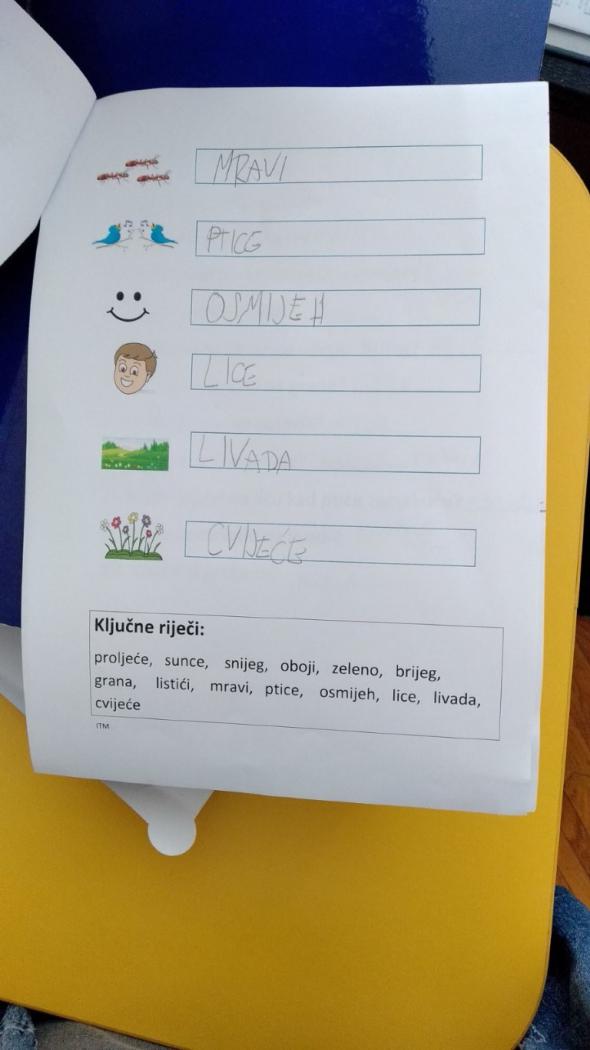 MRAVI
PTICE
OSMIJEH
LICE
LIVADA
CVIJEĆE
Ključne riječi:
proljeće, sunce, snijeg, oboji, zeleno, brijeg,
grana, listići, mravi, ptice, osmijeh, lice, livada,
cvijeće
ITM